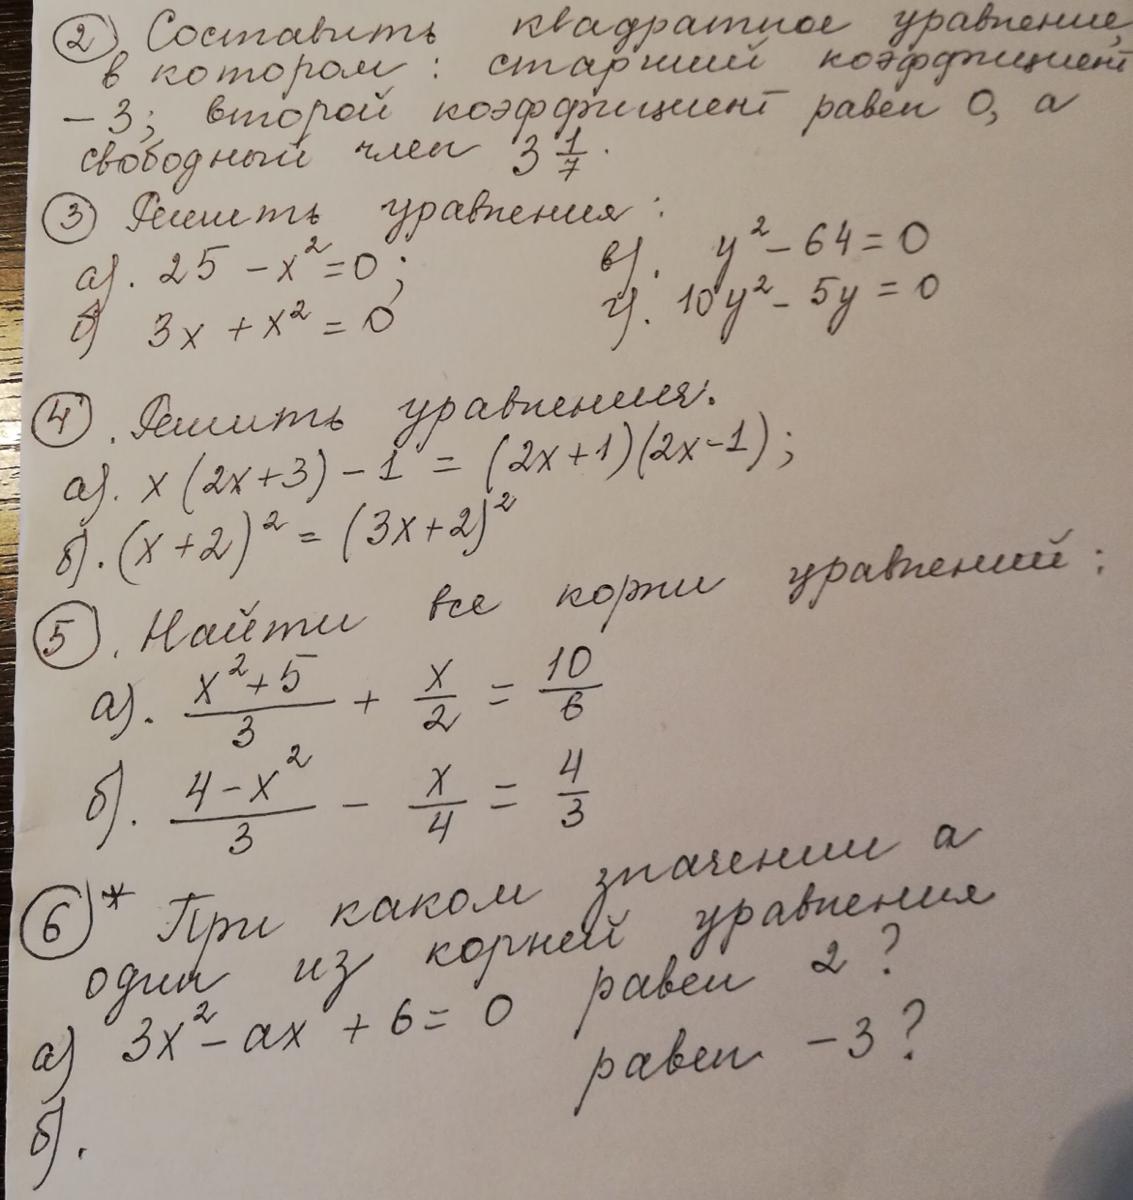 2) Составить квадратное уравнение,
в котором: старший коэффициент
-3; второй коэффициент равен 0, а
свободный член 3 1/7.
3 Решить уравнения:
а). 25 - x² = 0;
в). y² - 64 = 0
б) 3x + x² = 0
г). 10y² - 5y = 0
4. Решить уравнения.
а). x(2x+3) - 1 = (2x+1)(2x-1);
б). (x+2)² = (3x+2)²
5. Найти все корни уравнений:
а). (x²+5)/3 + x/2 = 10/6
б). (4-x²)/3 - x/4 = 4/3
6)* При каком значении а
один из корней уравнения
а) 3x² - ax + 6 = 0 равен 2?
б). равен -3?